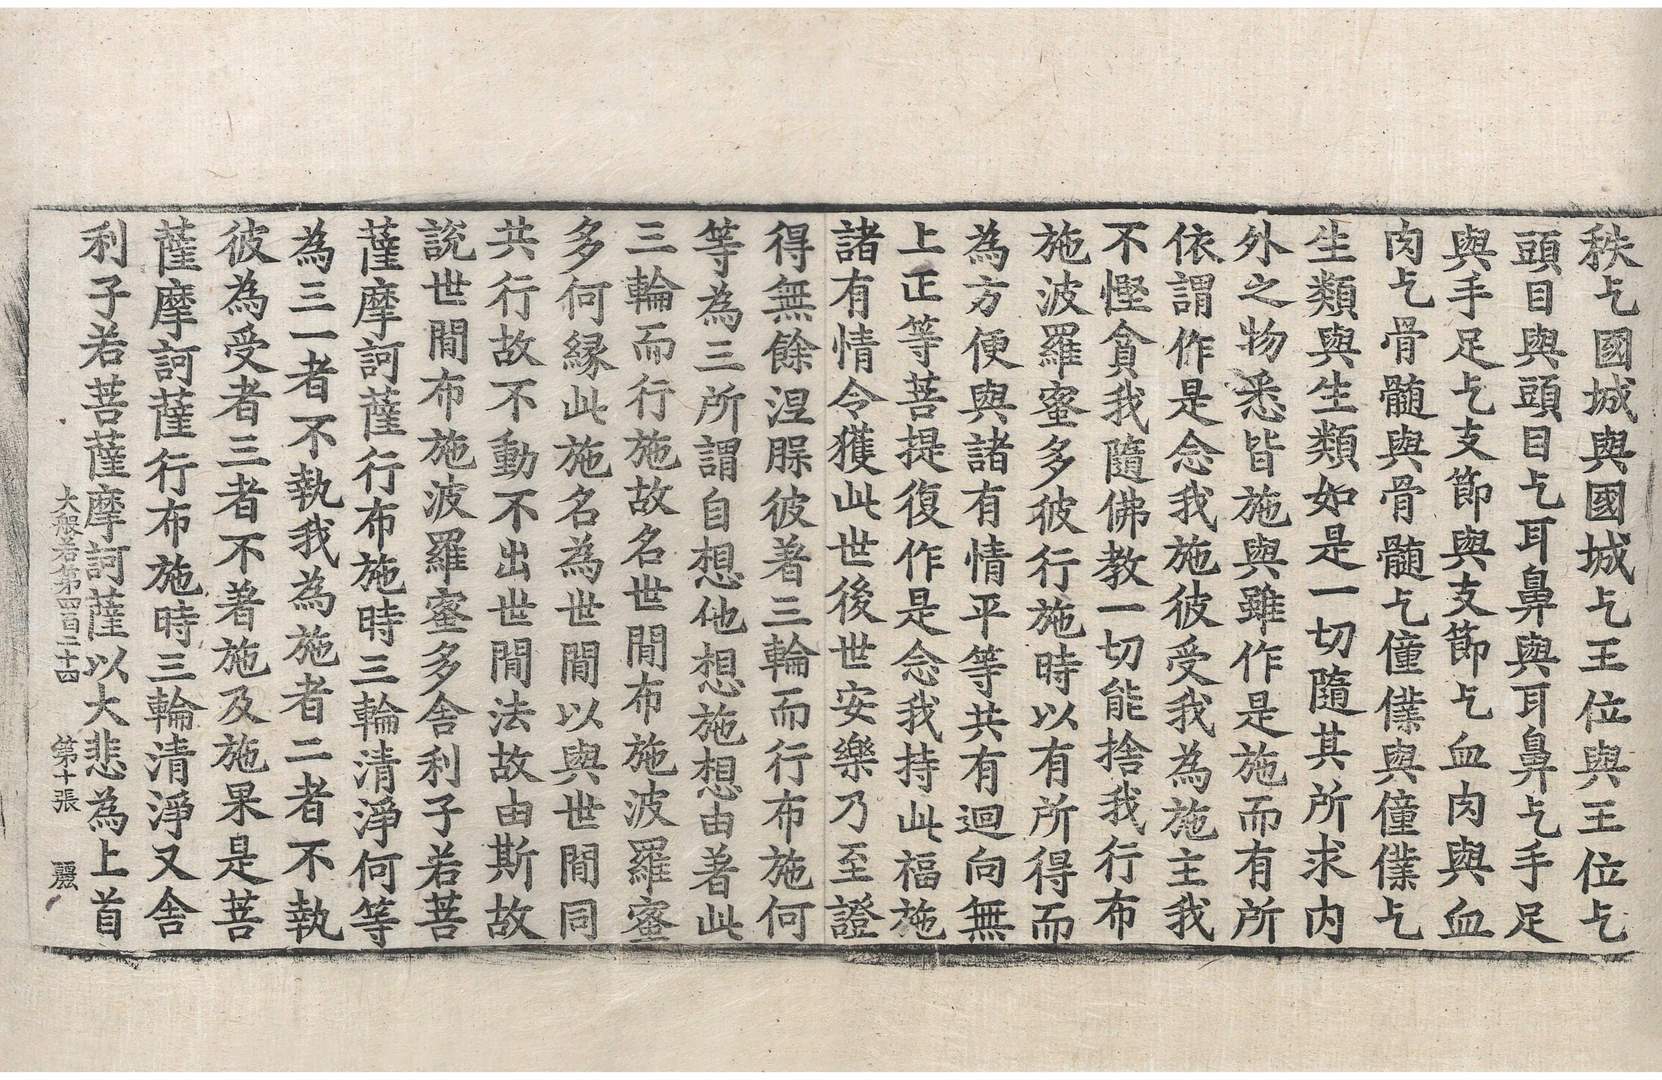 秩乞國城與國城乞王位與王位乞
頭目與頭目乞耳鼻與耳鼻乞手足
與手足乞支節與支節乞血肉與血
肉乞骨髓與骨髓乞僮僕與僮僕乞
生類與生類如是一切隨其所求内
外之物悉皆施與雖作是施而有所
依謂作是念我施彼受我為施主我
不慳貪我隨佛教一切能捨我行布
施波羅蜜多彼行施時以有所得而
為方便與諸有情平等共有迴向無
上正等菩提復作是念我持此福施
諸有情令獲此世後世安樂乃至證
得無餘涅槃彼著三輪而行布施何
等為三所謂自想他想施想由著此
三輪而行施故名世間布施波羅蜜
多何緣此施名為世間以與世間同
共行故不動不出世間法故由斯故
說世間布施波羅蜜多舍利子若菩
薩摩訶薩行布施時三輪清淨何等
為三一者不執我為施者二者不執
彼為受者三者不著施及施果是菩
薩摩訶薩行布施時三輪清淨又舍
利子若菩薩摩訶薩以大悲為上首
大般若第四百二十四 第十張 麗